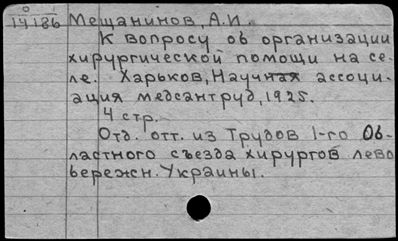 0
14186 Мещанинов, А.И.
К вопросу об организации
хирургической помощи на се-
ле. Харьков, Научная ассоци-
ация медсантруд, 1925.
4 стр.
Отд. отт. из Трудов 1-го Об-
ластного съезда хирургов лево
бережн. Украины.